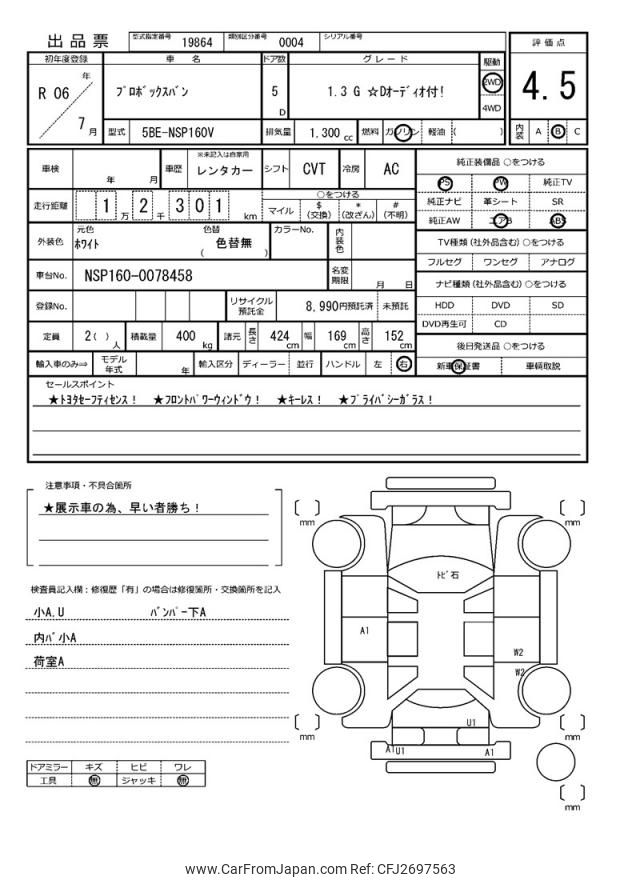 出品票 型式指定番号 19864 類別区分番号 0004 シリアル番号
初年度登録 車 名 ドア数 グレード 駆動 評価点
R 06 年 7 月 プロボックスバン 5 D 1.3 G ☆Dオーディオ付! 2WD 4WD 4.5
型式 5BE-NSP160V 排気量 1.300 cc 燃料 ガソリン 軽油 ( ) 内装 A B C
車検 年 月 車歴 ※未記入は自家用 レンタカー シフト CVT 冷房 AC
純正装備品 ○をつける
PS PW 純正TV
純正ナビ 革シート SR
純正AW エアB ABS
走行距離 1 万 2 千 3 0 1 km ○をつける
マイル $ (交換) * (改ざん) # (不明)
外装色 元色 ホワイト 色替 色替無 ( ) カラーNo. 内装色
TV種類 (社外品含む) ○をつける
フルセグ ワンセグ アナログ
車台No. NSP160-0078458 名変期限 月 日
ナビ種類 (社外品含む) ○をつける
HDD DVD SD
DVD再生可 CD
登録No. リサイクル預託金 8,990円預託済 未預託
定員 2( ) 人 積載量 400 kg 諸元 長さ 424 cm 幅 169 cm 高さ 152 cm
後日発送品 ○をつける
新車保証書 車輌取説
輸入車のみ⇒ モデル年式 年 輸入区分 ディーラー 並行 ハンドル 左 右
セールスポイント
★トヨタセーフティセンス! ★フロントパワーウィンドウ! ★キーレス! ★プライバシーガラス!
注意事項・不具合箇所
★展示車の為、早い者勝ち!
検査員記入欄:修復歴「有」の場合は修復箇所・交換箇所を記入
小A.U バンパー下A
内バ小A
荷室A
ドアミラー キズ ヒビ ワレ
工具 無 ジャッキ 無
mm
mm
トビ石
A1
W2
W2
U1
A1 U1
A1
mm
mm
mm
www.CarFromJapan.com Ref: CFJ2697563